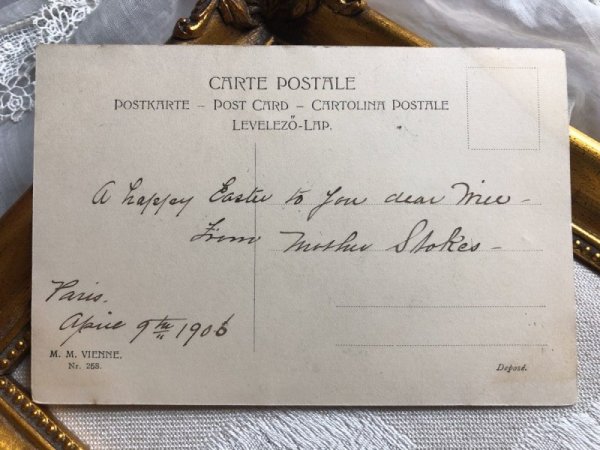 CARTE POSTALE
POSTKARTE – POST CARD – CARTOLINA POSTALE
LEVELEZŐ-LAP.
A happy Easter to you dear
From Mother Stokes –
Paris.
April 9th 1906
M. M. VIENNE.
Nr. 258.
Deposé.